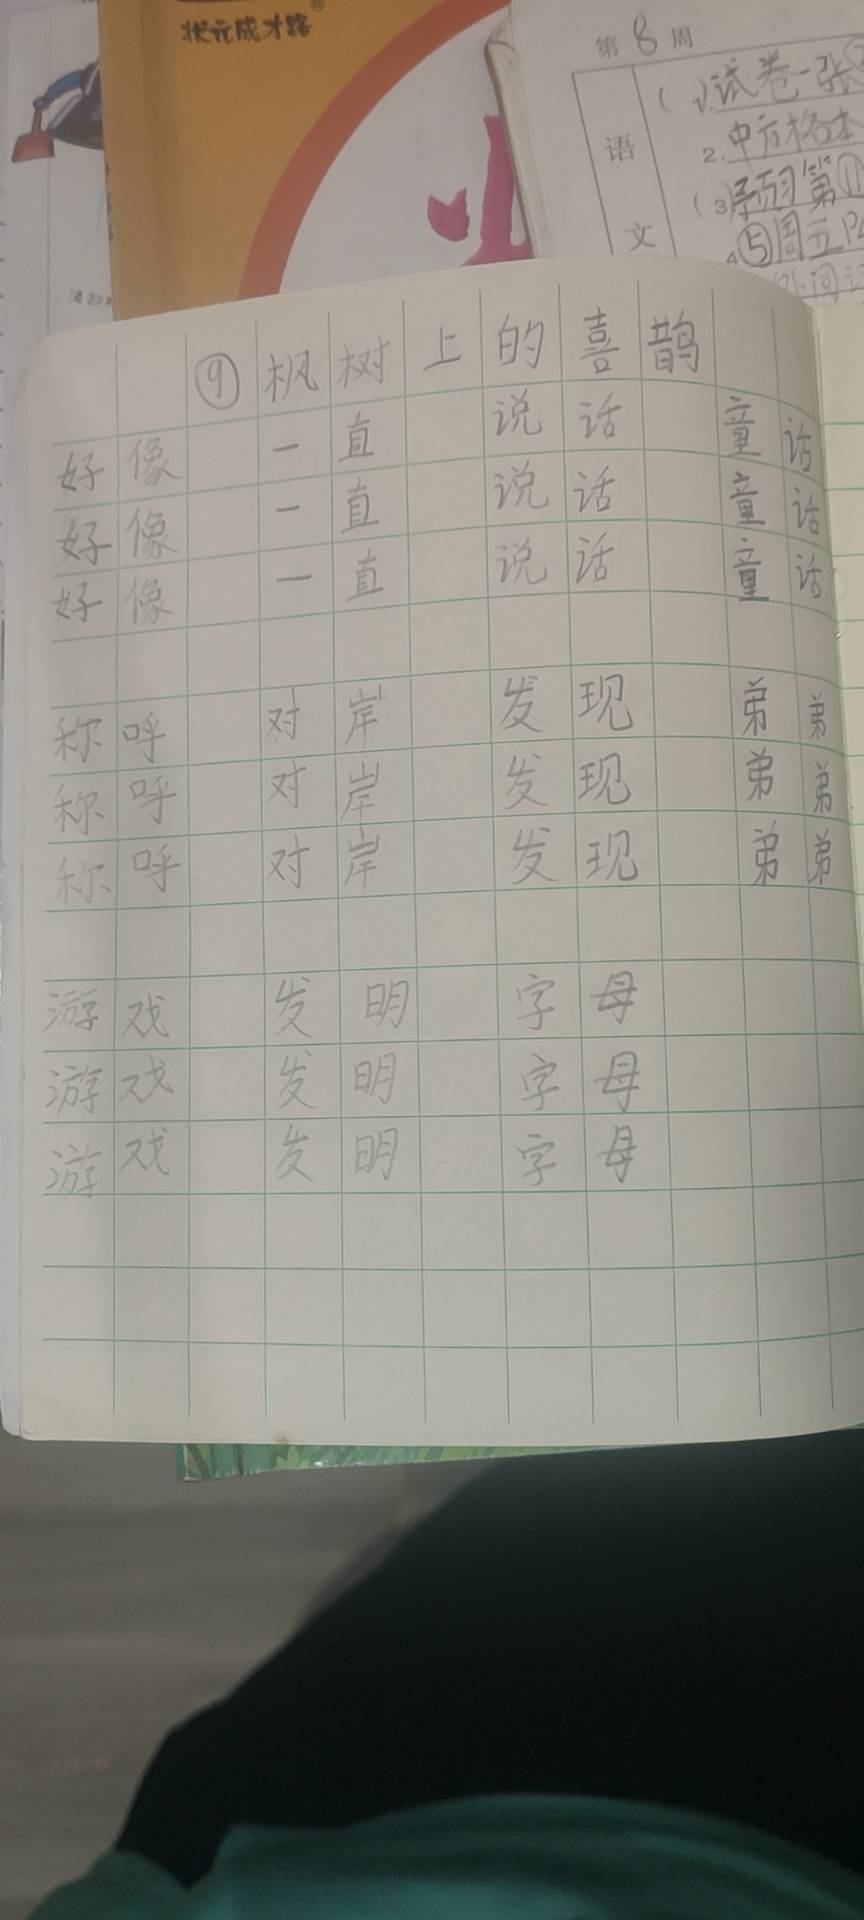 状元成才路
第8周
语文
试卷一张
2.中方格本
⑨枫树上的喜鹊
好像 一直 说话 童话
好像 一直 说话 童话
好像 一直 说话 童话
称呼 对岸 发现 弟弟
称呼 对岸 发现 弟弟
称呼 对岸 发现 弟弟
游戏 发明 字母
游戏 发明 字母
游戏 发明 字母